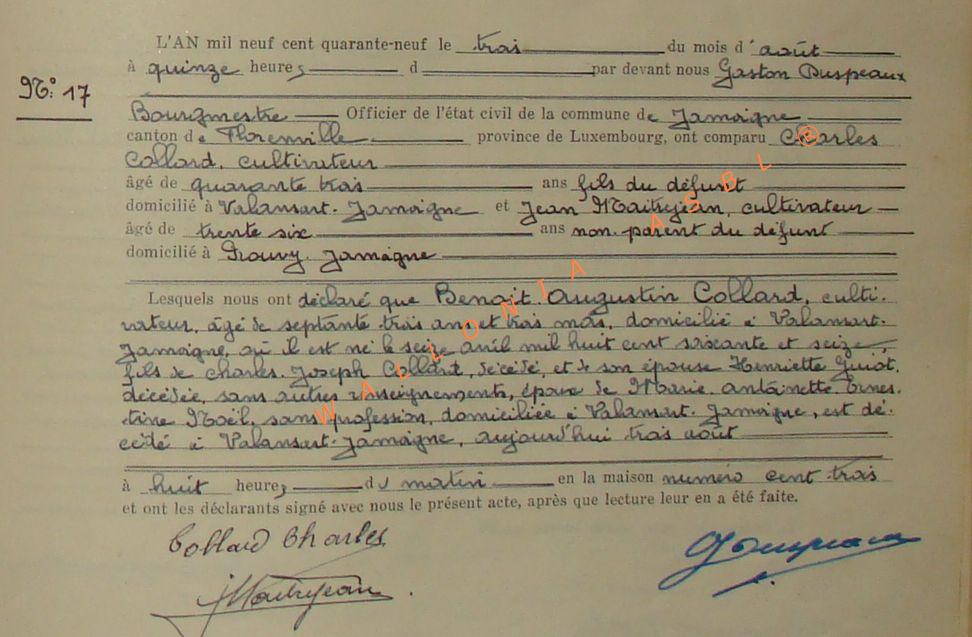 L'AN mil neuf cent quarante-neuf le trois du mois d'août
à quinze heures, d par devant nous Gaston Duspeaux
N° 17
Bourgmestre Officier de l'état civil de la commune de Jamoigne
canton de Florenville province de Luxembourg, ont comparu Charles
Collard, cultivateur
âgé de quarante trois ans fils du défunt
domicilié à Valansart-Jamoigne et Jean Maitrejean, cultivateur
âgé de trente six ans non parent du défunt
domicilié à Prouvy-Jamoigne
Lesquels nous ont déclaré que Benoit Augustin Collard, culti-
vateur, âgé de septante trois ans et trois mois, domicilié à Valansart-
Jamoigne, où il est né le seize avril mil huit cent soixante et seize
fils de Charles-Joseph Collard, décédé, et de son épouse Henriette Guiot,
décédée, sans autres renseignements, époux de Marie-Antoinette-Ernes-
tine Noël, sans profession, domiciliée à Valansart-Jamoigne, est dé-
cédé à Valansart-Jamoigne, aujourd'hui trois août
à huit heures, du matin en la maison numéro cent trois
et ont les déclarants signé avec nous le présent acte, après que lecture leur en a été faite.
Collard Charles
JMaitrejean
WALLONIA ASBL ©